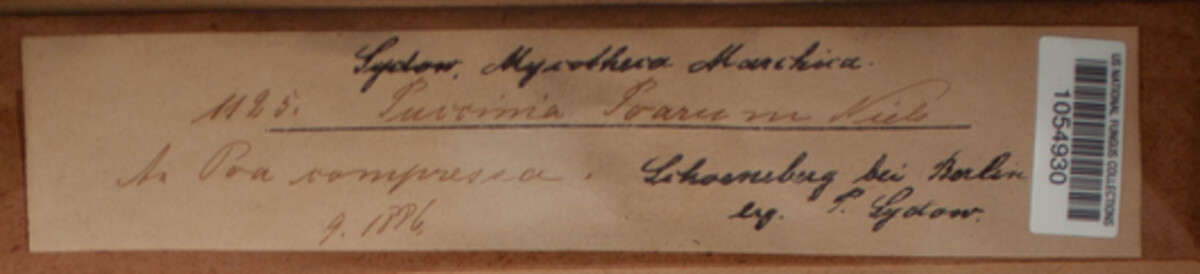 Sydow, Mycotheca Marchica.
1125. Puccinia Poarum Niels
A. Poa compressa. Schoeneberg bei Berlin
9. 1886. leg. P. Sydow.
US NATIONAL FUNGUS COLLECTIONS
1054930